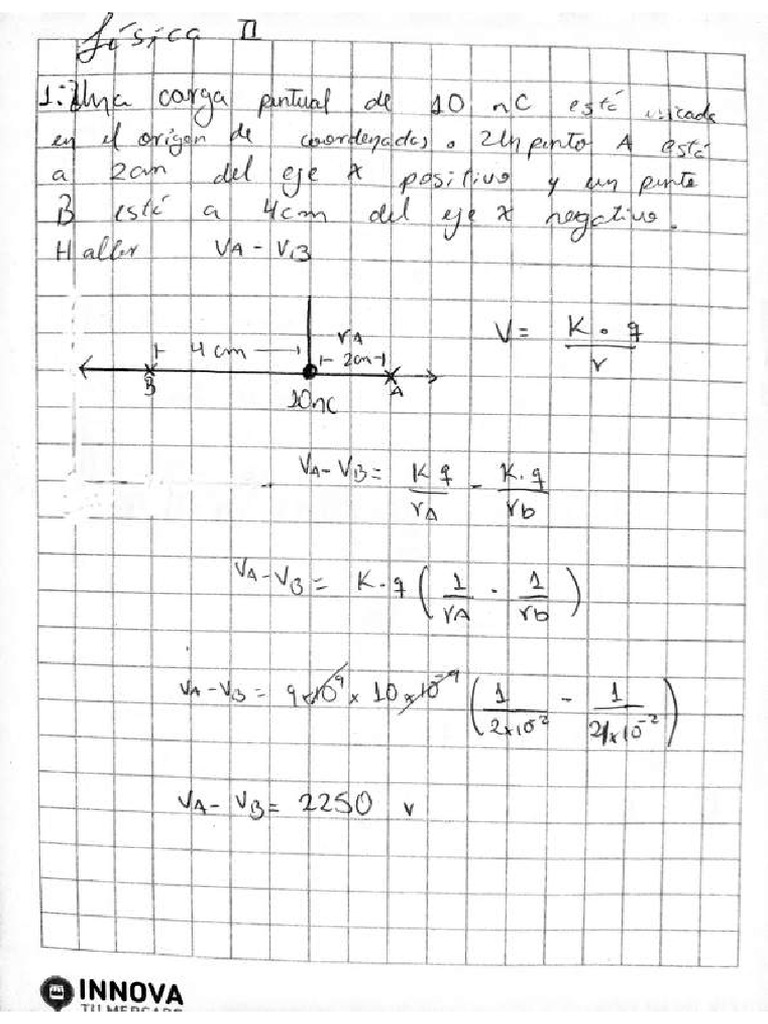 física II
1: Una carga puntual de 10 nC está ubicada
en el origen de coordenadas. Un punto A está
a 2cm del eje X positivo y un punto
B está a 4cm del eje X negativo.
Haller VA - VB
V = K · q / r
4cm
rA
2cm
B
A
10nC
VA - VB = K q / rA - K. q / rb
VA - VB = K · q ( 1 / rA - 1 / rb )
VA - VB = 9x10^9 x 10x10^-9 ( 1 / 2x10^-2 - 1 / 4x10^-2 )
VA - VB = 2250 v
INNOVA
TU MERCADO